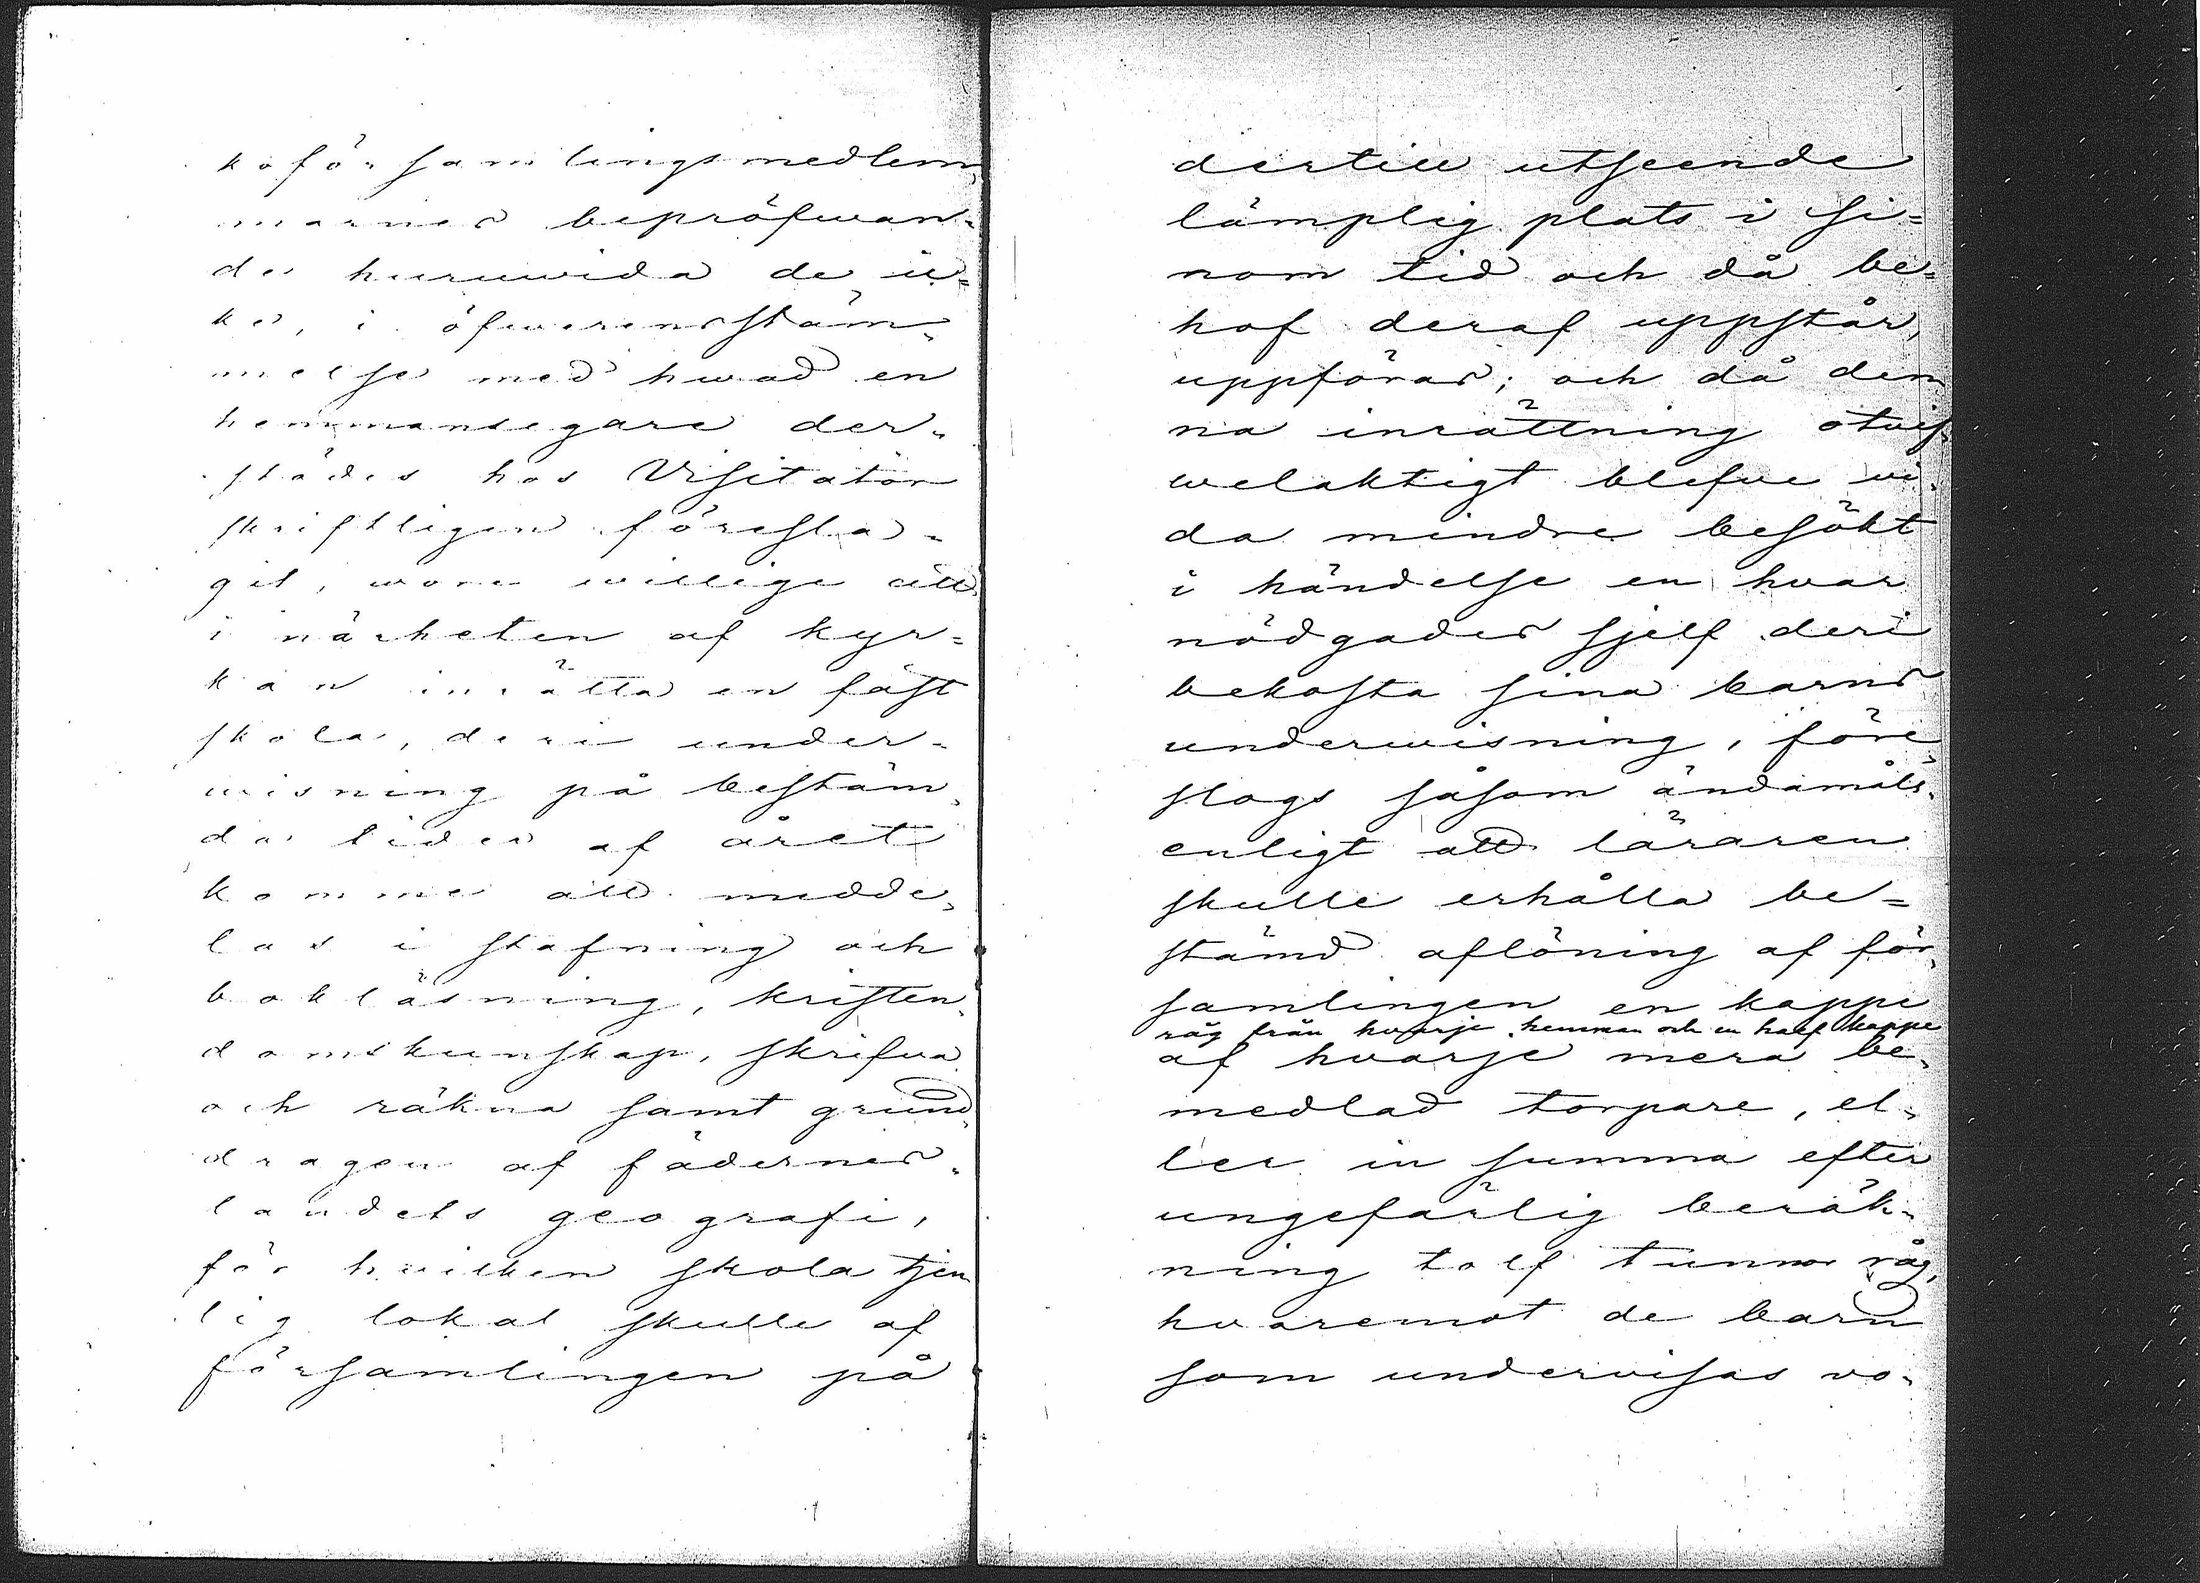 koförsamlingsmedlem,
marnes bepröfwan-
de huruwida de ic=
ke, i öfwerensstäm-
melse med hwad en
hemmansegare der-
städes hos Visitator
skriftligen föresla-
git, wore willige att
i närheten af kyr=
kan inrätta en fast
skola, deri under-
wisning på bestäm-
da tider af året
komme att medde-
las i stafning och
bokläsning, kristen-
domskunskap, skrifva
och räkna samt grund-
dragen af fädernes-
landets geografi,
för hvilken skola tjen
lig lokal skulle af
församlingen på
dertill utseende
lämplig plats i si=
nom tid och då be=
hof deraf uppstår,
uppföras; och då den
na inrättning otvif-
welaktigt blefve vi-
da mindre besökt
i händelse en hvar
nödgades sjelf deri
bekosta sina barns
underwisning, före
slogs såsom ändamåls-
enligt att läraren
skulle erhålla be=
stämd aflöning af för-
samlingen en kappe
råg från hvarje hemman och en half kappe
af hvarje mera be-
medlad torpare, el-
ler in summa efter
ungefärlig beräk-
ning tolf tunnor råg,
hvaremot de barn
som undervisas vo-